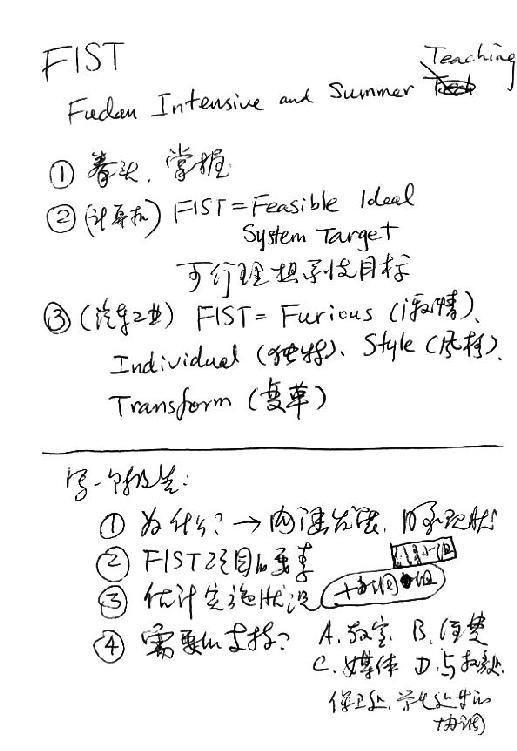 FIST
Teaching
Fudan Intensive and Summer
① 拳头、掌握
② (计算机) FIST = Feasible Ideal
System Target
可行理想系统目标
③ (汽车工业) FIST = Furious (激情)、
Individual (独特)、Style (风格)、
Transform (变革)
写一个报告:
① 为什么? → 内涵发展、
② FIST项目的要素
③ 估计实施状况
④ 需要的支持? A. 教室 B. 经费
C. 媒体 D. 与教务处、
保卫处、学生处等的
协调